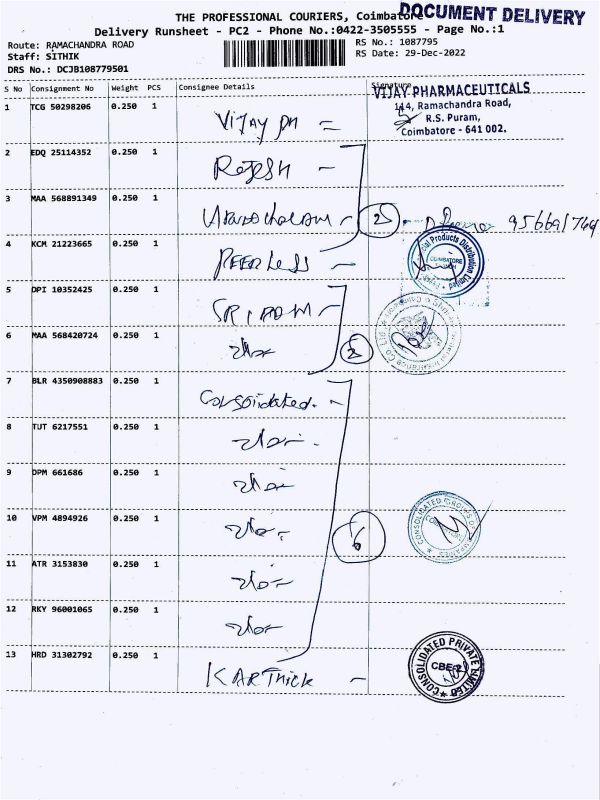 DOCUMENT DELIVERY
THE PROFESSIONAL COURIERS, Coimbatore
Delivery Runsheet - PC2 - Phone No.:0422-3505555 - Page No.:1
Route: RAMACHANDRA ROAD
RS No.: 1087795
Staff: SITHIK
RS Date: 29-Dec-2022
DRS No.: DCJB108779501
S No Consignment No Weight PCS Consignee Details Signature
VIJAY PHARMACEUTICALS
114, Ramachandra Road,
R.S. Puram,
Coimbatore - 641 002.
1 TCG 50298206 0.250 1 Vijay PH
2 EDQ 25114352 0.250 1 Rajesh
3 MAA 568891349 0.250 1
4 KCM 21223665 0.250 1 PEERLESS
5 DPI 10352425 0.250 1 SRIRAM
6 MAA 568420724 0.250 1
7 BLR 4350908883 0.250 1 Consolidated.
8 TUT 6217551 0.250 1
9 DPM 661686 0.250 1
10 VPM 4894926 0.250 1
6
11 ATR 3153830 0.250 1
12 RKY 96001065 0.250 1
13 HRD 31302792 0.250 1 KARTHICK
CONSOLIDATED PRIVATE LIMITED
CBE-2